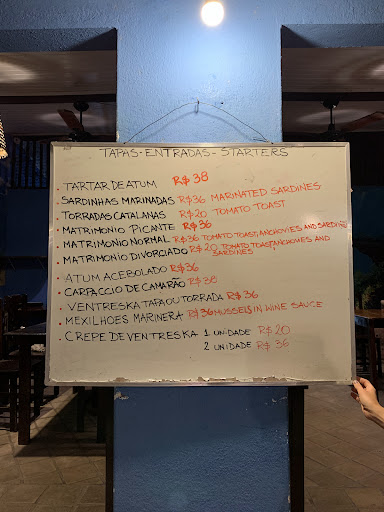 TAPAS - ENTRADAS - STARTERS
• TARTAR DE ATUM R$ 38
• SARDINHAS MARINADAS R$36 MARINATED SARDINES
• TORRADAS CATALANAS R$20 TOMATO TOAST
• MATRIMONIO PICANTE R$36
• MATRIMONIO NORMAL R$36 TOMATO TOAST, ANCHOVIES AND SARDINES
• MATRIMONIO DIVORCIADO R$20 TOMATO TOAST, ANCHOVIES AND SARDINES
• ATUM ACEBOLADO R$36
• CARPACCIO DE CAMARÃO R$38
• VENTRESKA TAPA OU TORRADA R$ 36
• MEXILHOES MARINERA R$36 MUSSELS IN WINE SAUCE
• CREPE DE VENTRESKA 1 UNIDADE R$ 20
2 UNIDADE R$ 36